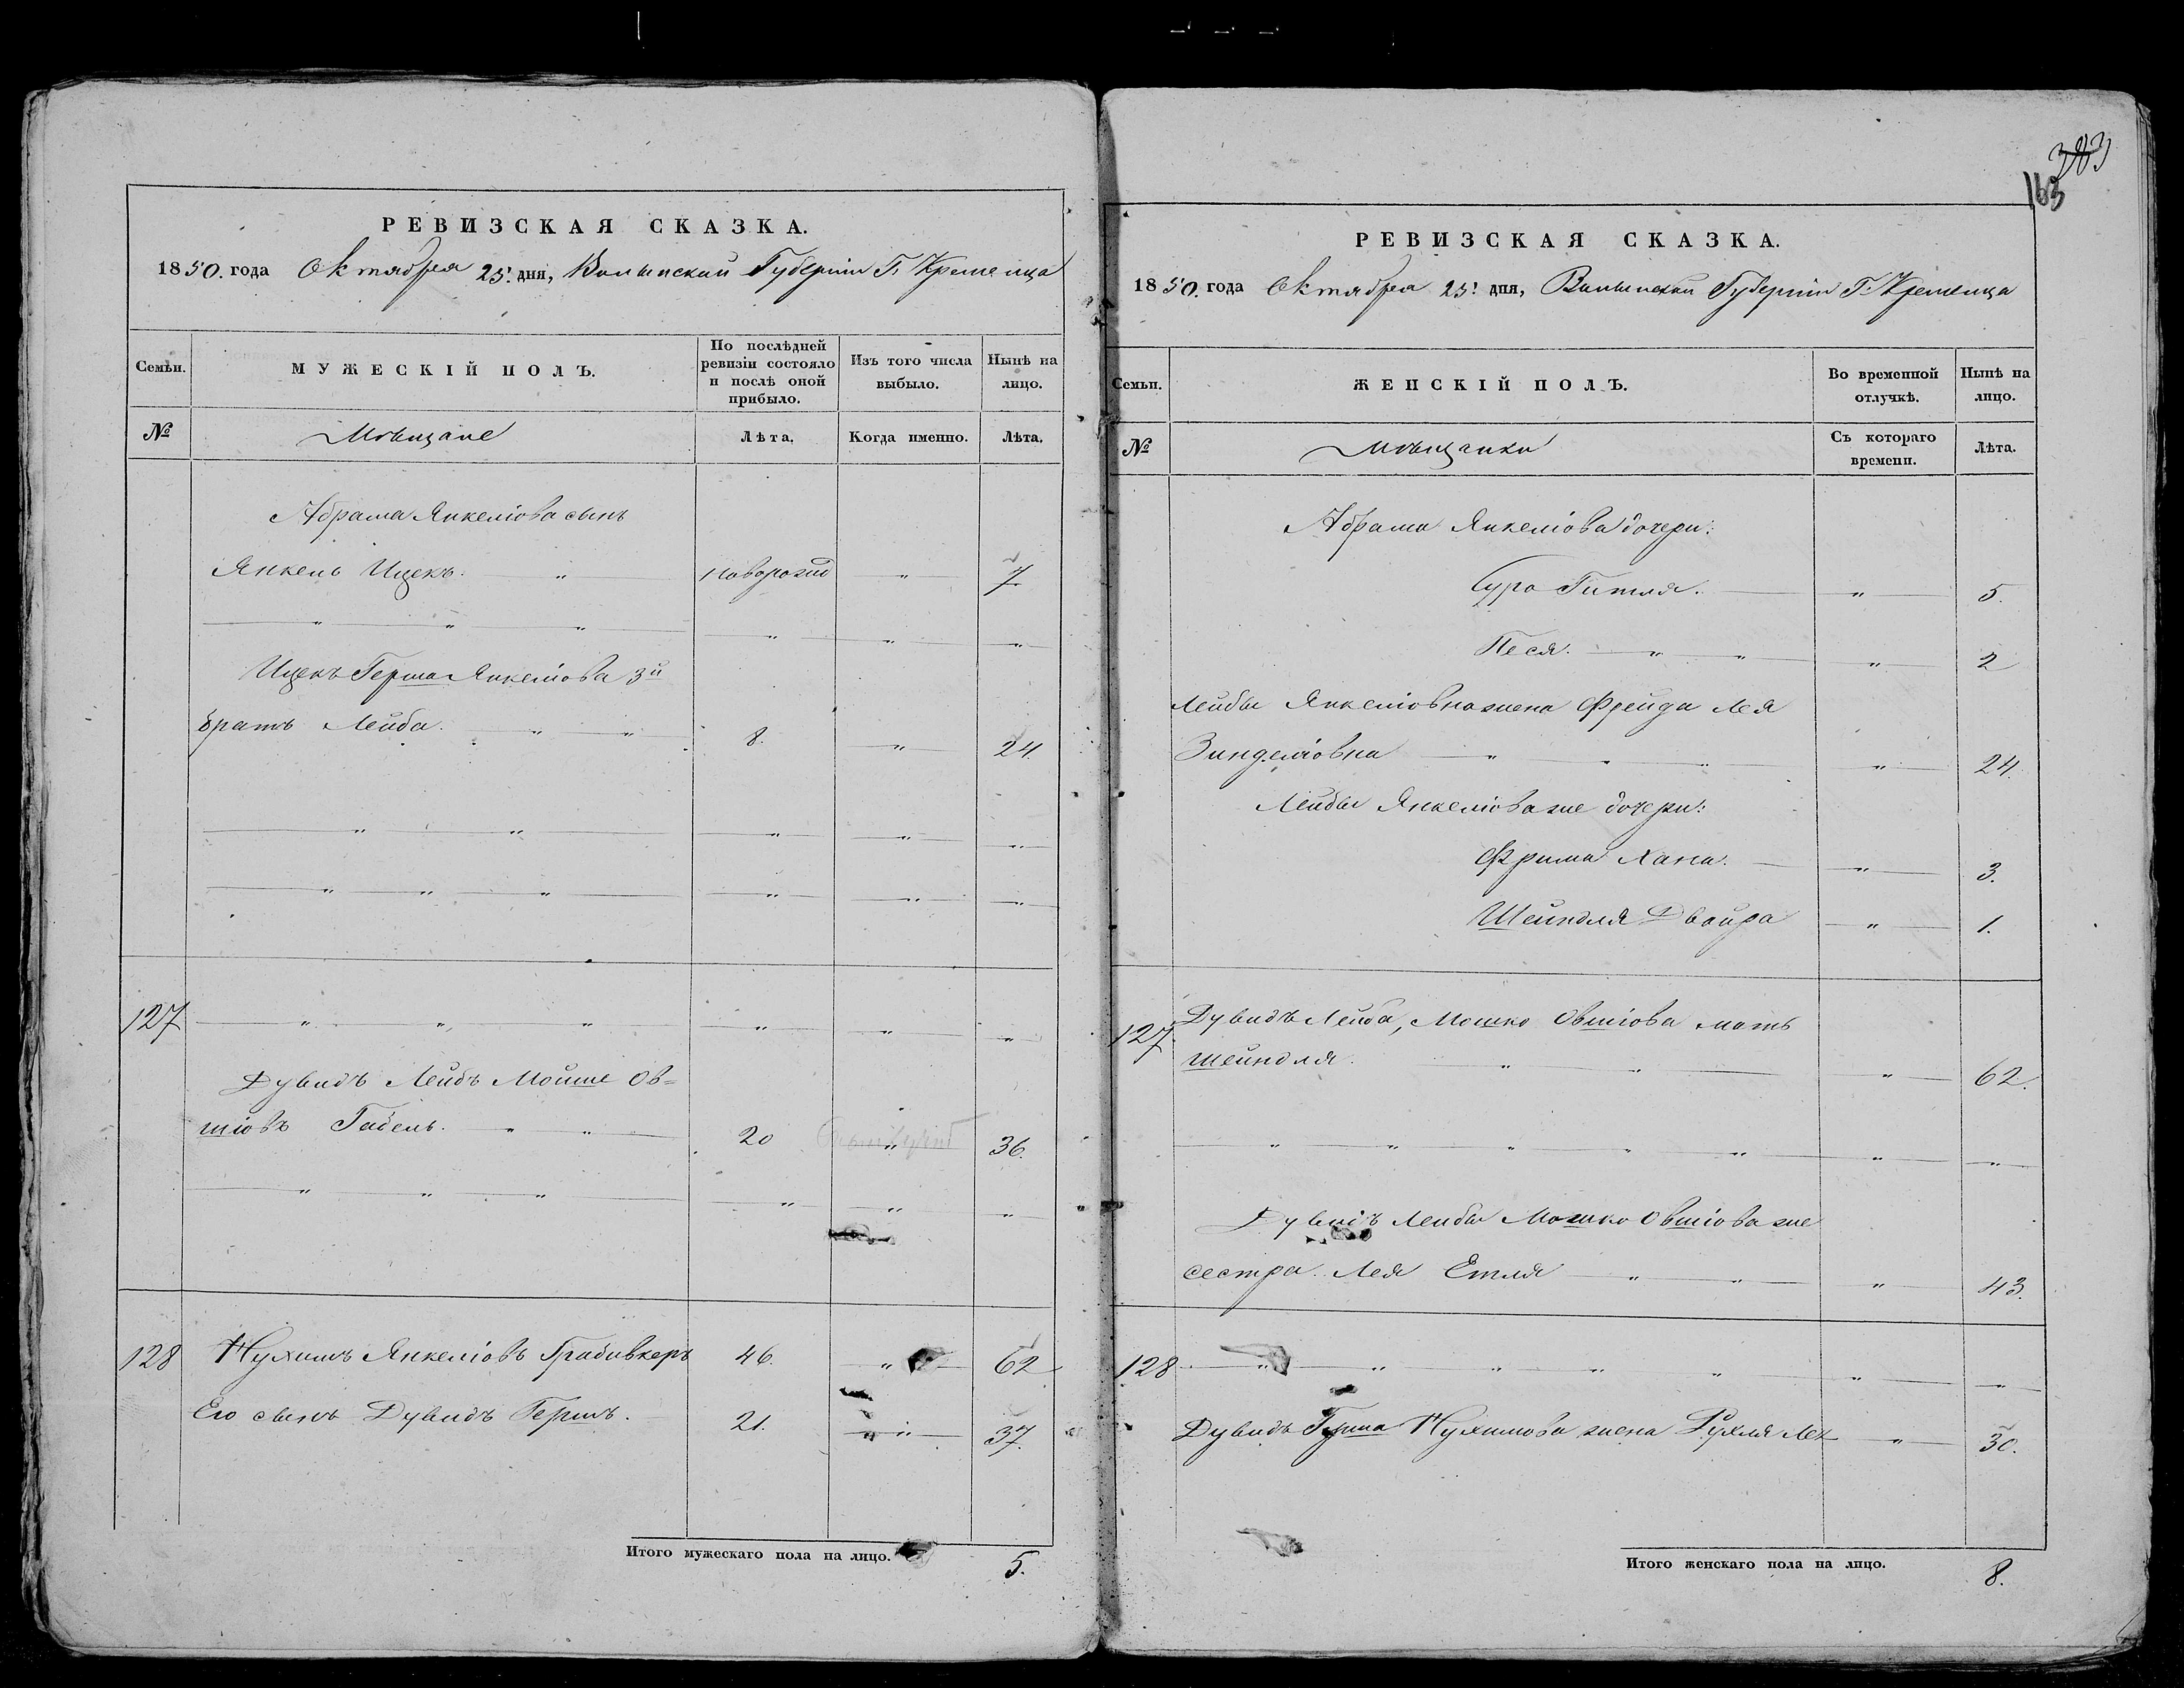 383
163
РЕВИЗСКАЯ СКАЗКА.
1850. года Октября 25. дня, Волынской Губерніи Г. Кременца
Семьи.
МУЖЕСКІЙ ПОЛЪ.
По послѣдней ревизіи состояло и послѣ оной прибыло.
Изъ того числа выбыло.
Нынѣ на лицо.
№
Мѣщане
Лѣта.
Когда именно.
Лѣта.
Абрама Янкеліова сынъ
Янкель Ицекъ. " новорожд " 7
" " " " " "
Ицекъ Герша Янкеліова 3й
братъ Лейба. " " 8. " 24.
" " " " "
" " " " " "
127 " " " " " "
Дувидъ Лейбъ Мойше Ов=
шіовъ Габель. " " 20 " 36.
" " " " " "
128 Нухимъ Янкеліовъ Грабивкеръ 46. " 62
Его сынъ Дувидъ Гершъ. 21. " 37.
Итого мужескаго пола на лицо. 5.
РЕВИЗСКАЯ СКАЗКА.
1850. года Октября 25. дня, Волынской Губерніи Г. Кременца
Семьи.
ЖЕНСКІЙ ПОЛЪ.
Во временной отлучкѣ.
Нынѣ на лицо.
№
Мѣщанки
Съ котораго времени.
Лѣта.
Абрама Янкеліова дочери:
Сура Гитля. " 5.
Песя. " " " 2
Лейбы Янкеліовна жена Фрейда Лея
Зинделіовна " " " " 24.
Лейбы Янкеліова же дочери:
Фрима Хана. " 3.
Шейндля Двойра " 1.
127 Дувидъ Лейба, Мошко Овшіова мать
Шейндля. " " " 62.
" " " " " " "
Дувидъ Лейбы Мошко Овшіова же
сестра Лея Етля " " " 43.
128 " " " " " " "
Дувидъ Герша Нухимова жена Рухля Лея " 30.
Итого женскаго пола на лицо. 8.